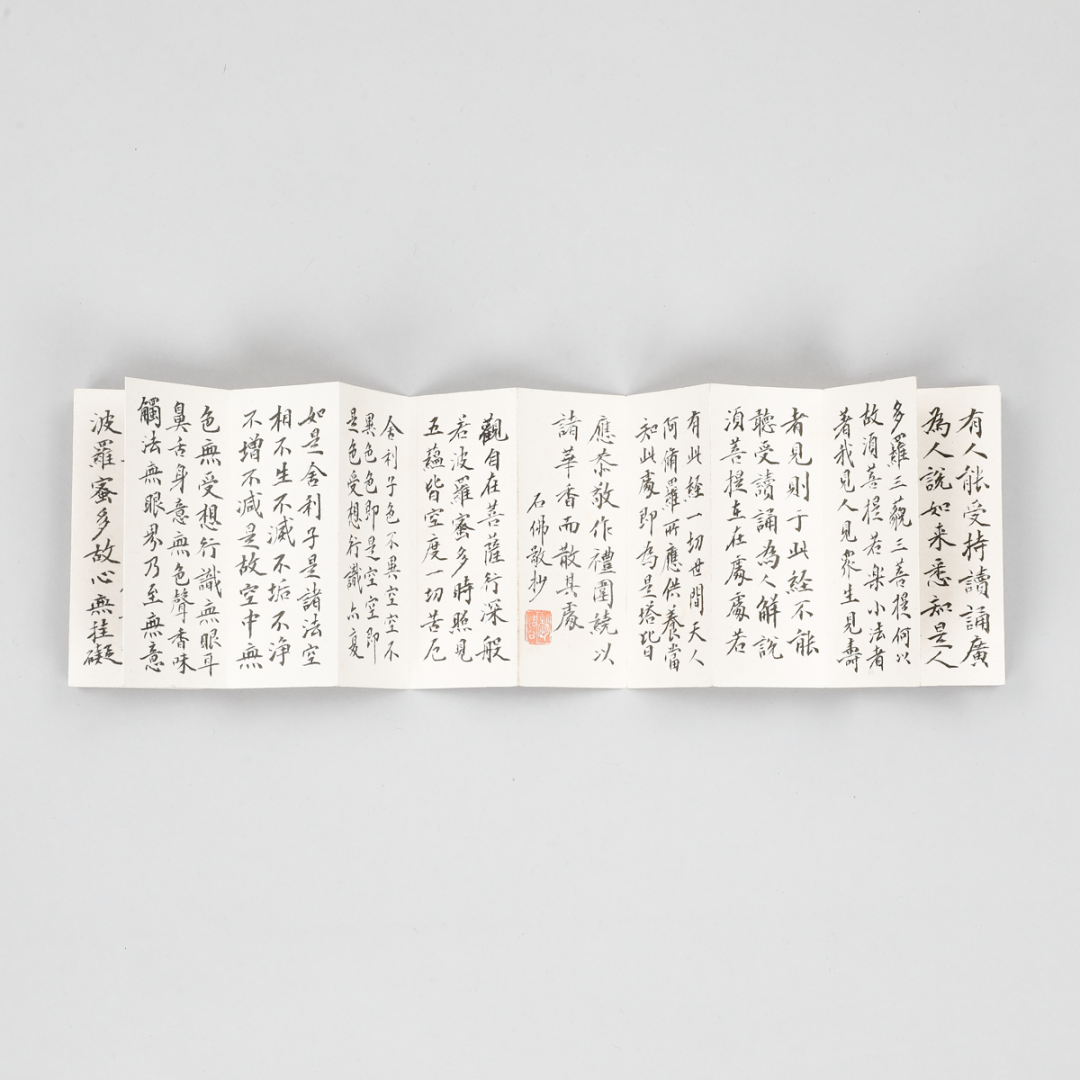 有人能受持讀誦廣
為人說如来悉知是人
多羅三藐三菩提何以
故須菩提若樂小法者
著我見人見眾生見壽
者見則于此経不能
聽受讀誦為人解說
須菩提在在處處若
有此経一切世間天人
阿脩羅所應供養當
知此處即為是塔皆
應恭敬作禮圍繞以
諸華香而散其處
石佛敬抄
觀自在菩薩行深般
若波羅蜜多時照見
五蘊皆空度一切苦厄
舍利子色不異空空不
異色色即是空空即
是色受想行識亦復
如是舍利子是諸法空
相不生不滅不垢不净
不增不減是故空中無
色無受想行識無眼耳
鼻舌身意無色聲香味
觸法無眼界乃至無意
波羅蜜多故心無挂礙